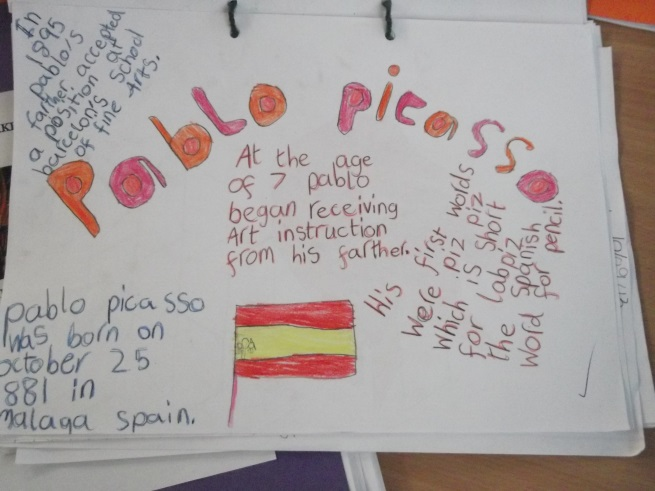 In
1895
pablo,s
farther accepted
a position at
barcelon,s School
of fine Arts.
Pablo picasso
At the age
of 7 pablo
began receiving
Art instruction
from his farther.
His first words
were piz piz
which is short
for labpiz
the Spanish
word for pencil.
pablo picasso
was born on
october 25
1881 in
malaga spain.